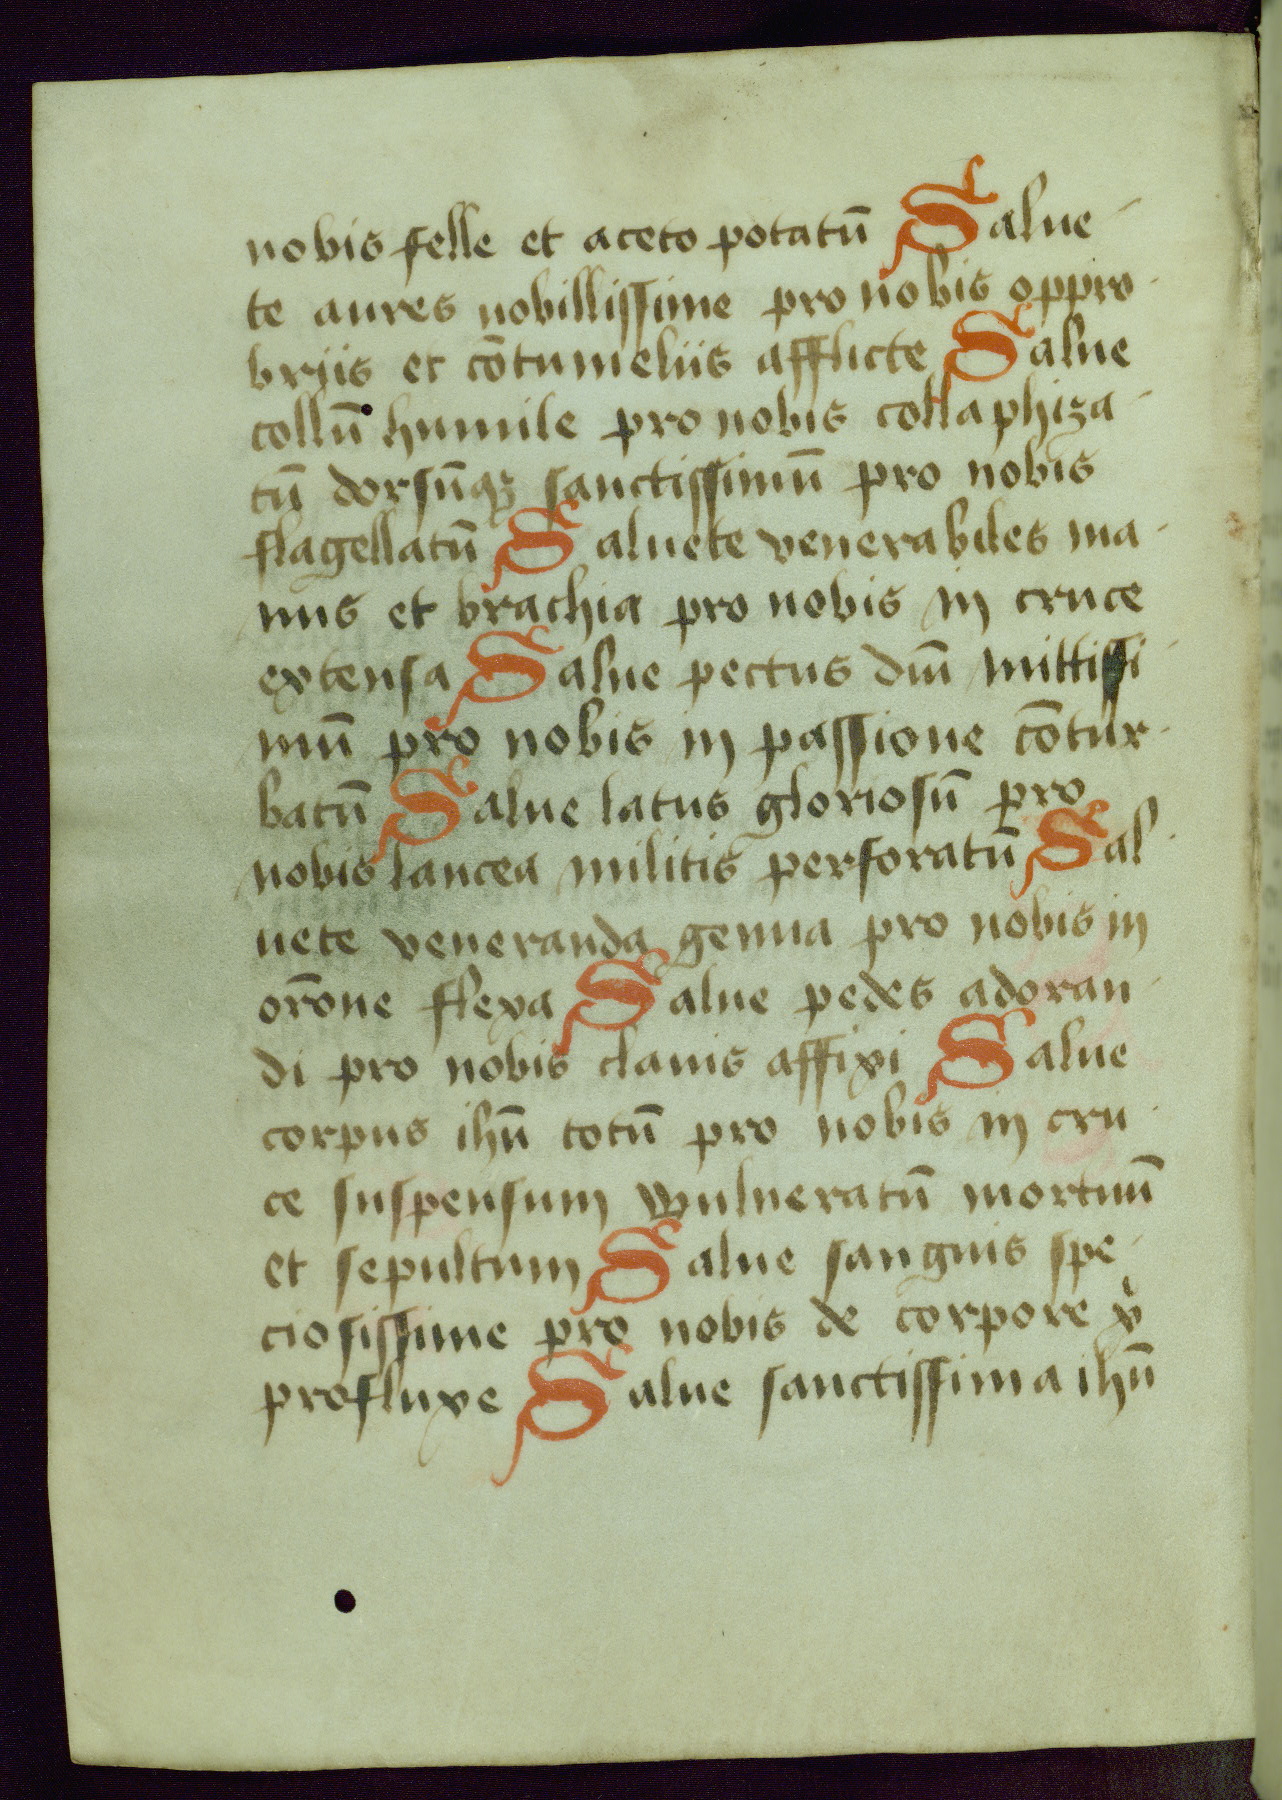 nobis felle et aceto potatū Salue-
te aures nobillissime pro nobis oppro-
brijs et cōtumeliis afflicte Salue
collū humile pro nobis collaphiza-
tū dorsūqꝫ sanctissimū pro nobis
flagellatū Saluete venerabiles ma-
nus et brachia pro nobis in cruce
extensa Salue pectus dīm mittissi-
mū pro nobis in passione cōtur-
batū Salue latus gloriosū pro
nobis lancea militis perforatū Sal-
uete veneranda genua pro nobis in
orōne flexa Salue pedes adoran-
di pro nobis clauis affixi Salue
corpus ihū totū pro nobis in cru-
ce suspensum wulneratū mortuū
et sepultum Salue sanguis spe-
ciosissime pro nobis de corpore xͥ
profluxe Salue sanctissima ihū